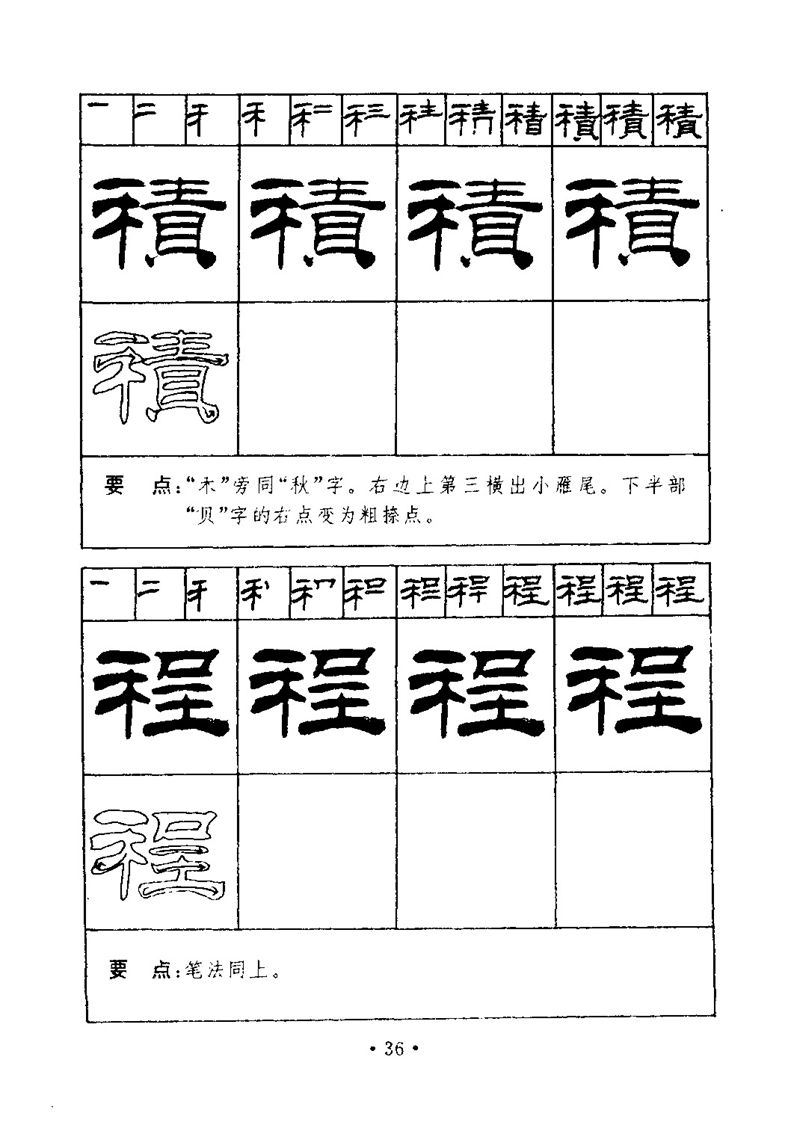 一 二 禾 積 積 積
積 積 積 積
積
要 点：“禾”旁同“秋”字。右边上第三横出小雁尾。下半部
“贝”字的右点变为粗捺点。
一 二 程 程 程
程 程 程 程
程
要 点：笔法同上。
·36·